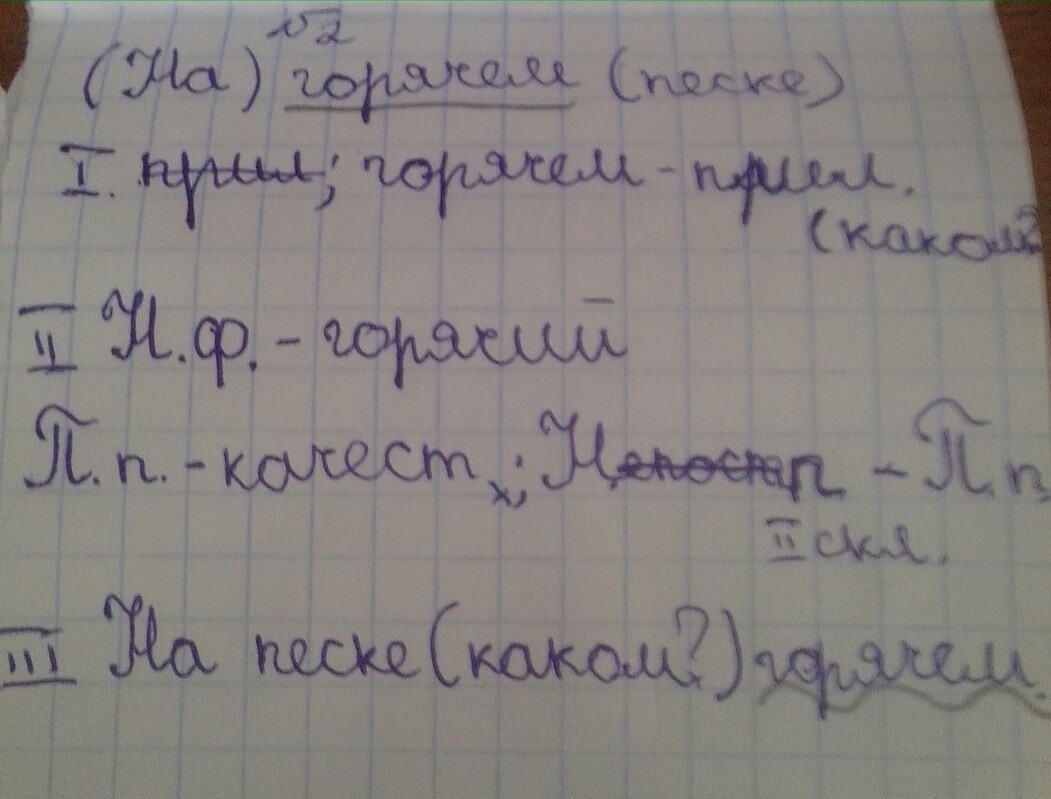 √2
(На) горячем (песке)
I. прил; горячем - прил.
(каком?
II Н.ф. - горячий
П.п. - качест.; Непост - П.п.
II скл.
III На песке (каком?) горячем.